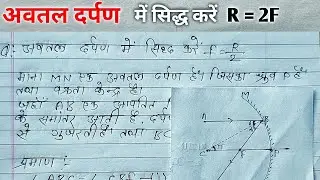 अवतल दर्पण में सिद्ध करें R = 2F
Q: अवतल दर्पण में सिद्ध करें f = R/2
माना MN एक अवतल दर्पण है। जिसका ध्रुव P है
तथा वक्रता केन्द्र है।
जहाँ AB एक आपतित
के समांतर आती है, दर्पण
से गुजरती है। तथा BC
प्रमाण :